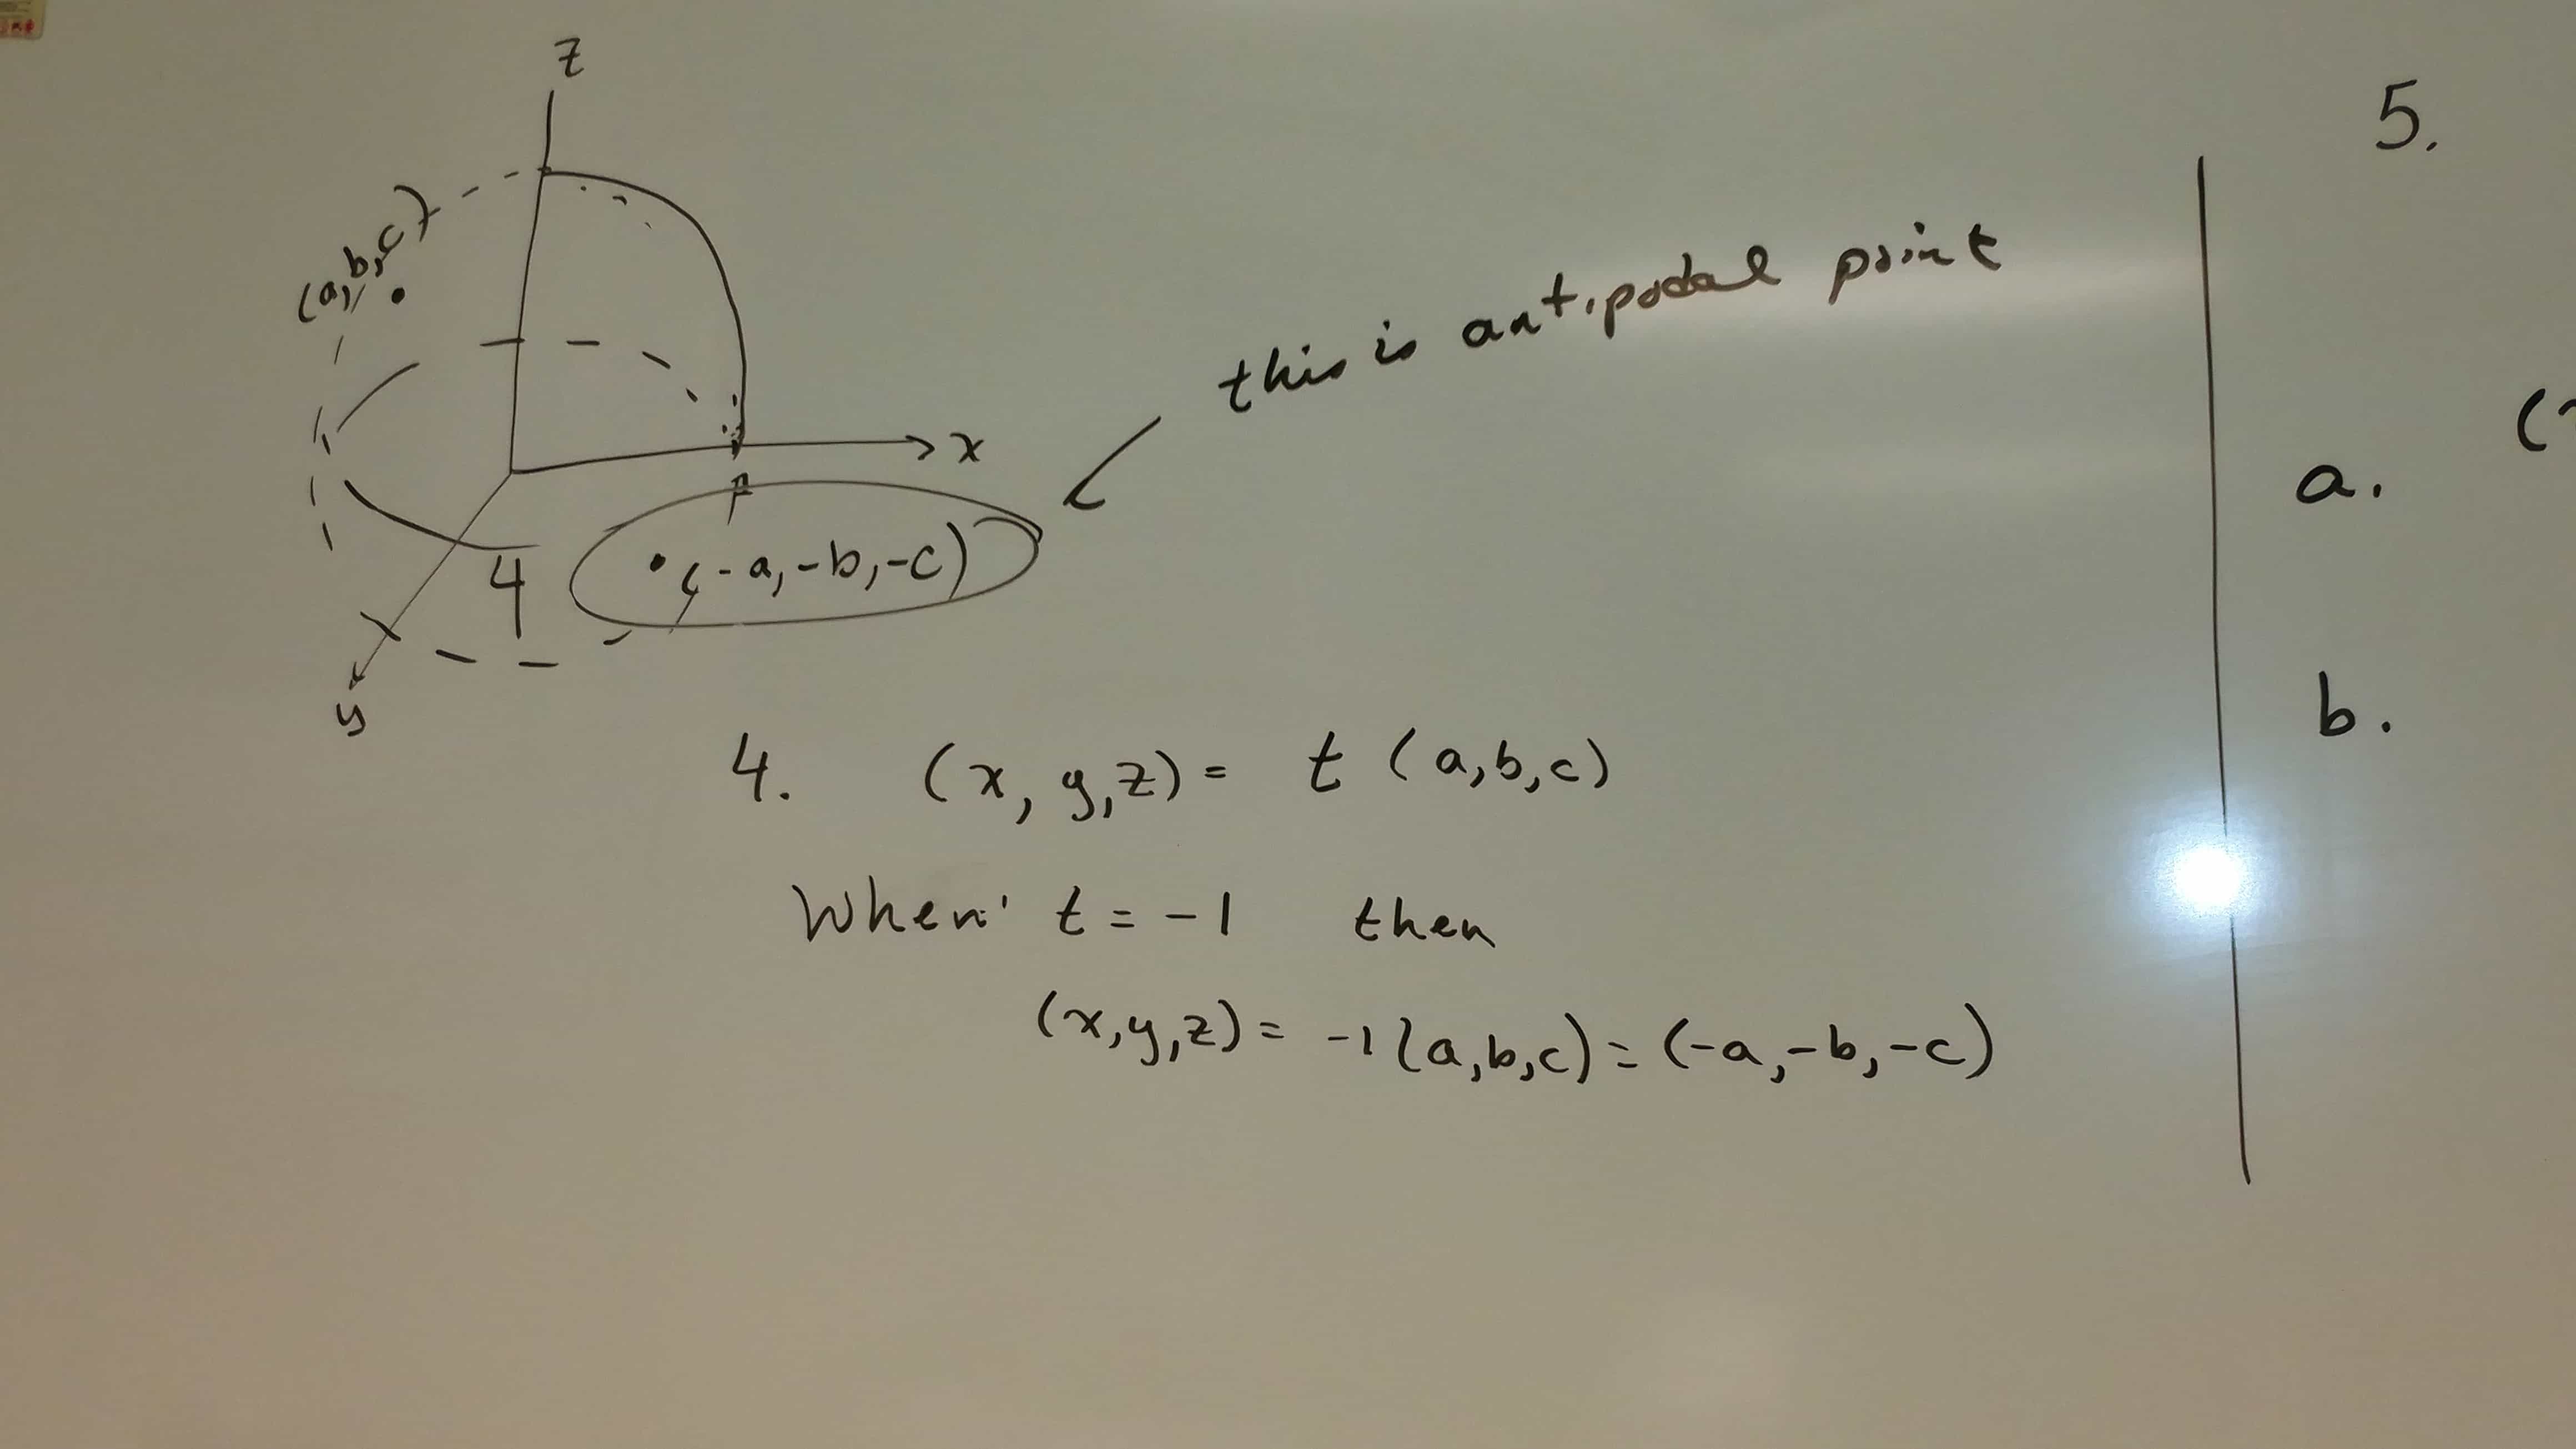 z
(a, b, c)
this is antipodal point
x
(-a, -b, -c)
4
y
4. (x, y, z) = t (a, b, c)
When t = -1 then
(x, y, z) = -1 (a, b, c) = (-a, -b, -c)
5.
a. (
b.